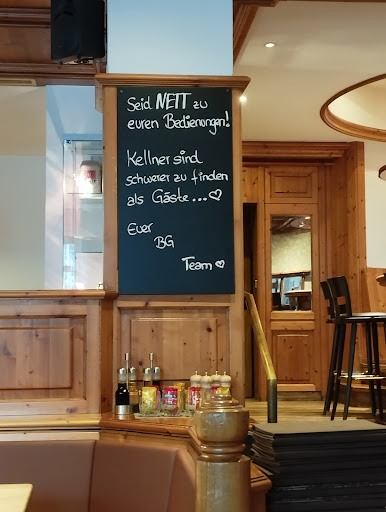 Seid NETT zu
euren Bedienungen!
Kellner sind
schwerer zu finden
als Gäste...♡
Euer
BG
Team ♡